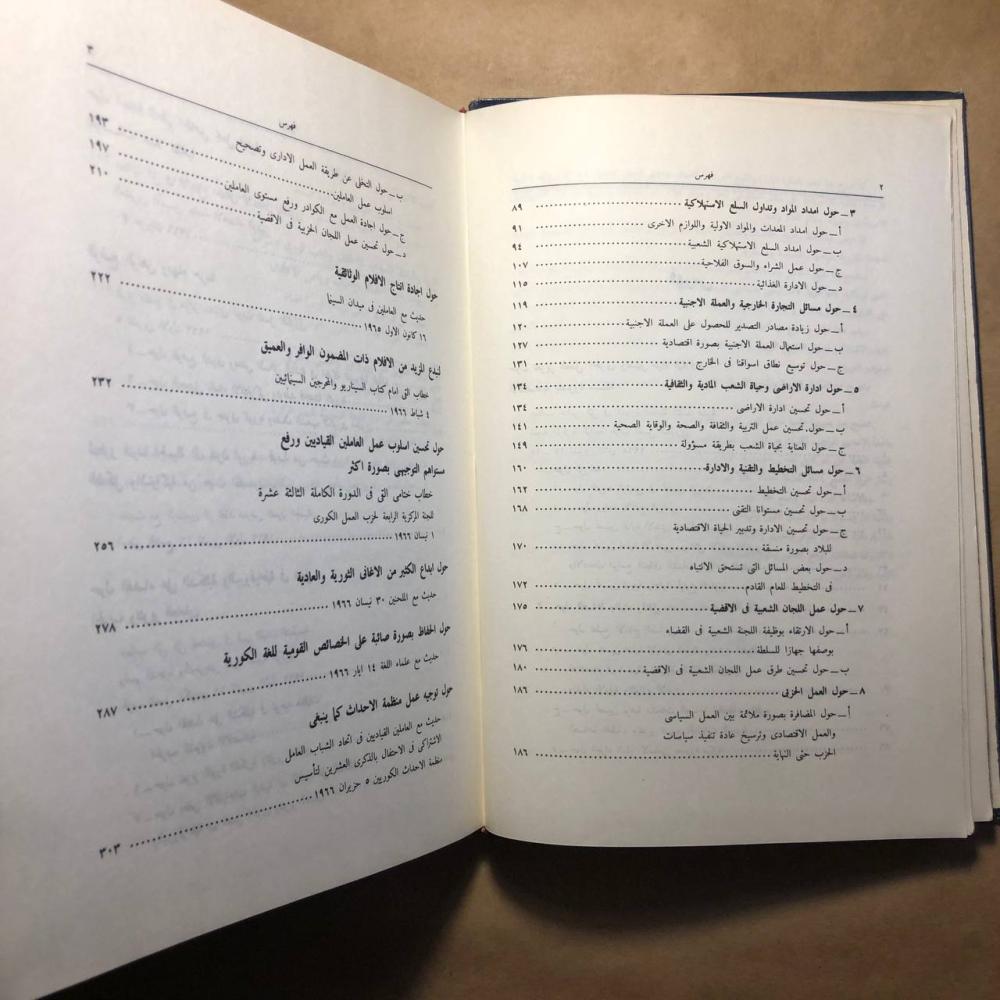 ٢
فهرس
٣ـ حول امداد المواد وتداول السلع الاستهلاكية ٨٩
أـ حول امداد المعدات والمواد الاولية واللوازم الاخرى ٩١
ب ـ حول امداد السلع الاستهلاكية الشعبية ٩٤
ج ـ حول عمل الشراء والسوق الفلاحية ١٠٧
د ـ حول الادارة الغذائية ١١٥
٤ ـ حول مسائل التجارة الخارجية والعملة الاجنبية ١١٩
أـ حول زيادة مصادر التصدير للحصول على العملة الاجنبية ١٢٠
ب ـ حول استعمال العملة الاجنبية بصورة اقتصادية ١٢٧
ج ـ حول توسيع نطاق اسواقنا فى الخارج ١٣١
٥ ـ حول ادارة الاراضى وحياة الشعب المادية والثقافية ١٣٤
أـ حول تحسين ادارة الاراضى ١٣٤
ب ـ حول.تحسين عمل التربية والثقافة والصحة والوقاية الصحية ١٤١
ج ـ حول العناية بحياة الشعب بطريقة مسؤولة ١٤٩
٦ ـ حول مسائل التخطيط والتقنية والادارة ١٦٠
أـ حول تحسين التخطيط ١٦٢
ب ـ حول تحسين مستوانا التقنى ١٦٨
ج ـ حول تحسين الادارة وتدبير الحياة الاقتصادية
للبلاد بصورة منسقة ١٧٠
د ـ حول بعض المسائل التى تستحق الانتباه
فى التخطيط للعام القادم ١٧٢
٧ ـ حول عمل اللجان الشعبية فى الاقضية ١٧٥
أـ حول الارتقاء بوظيفة اللجنة الشعبية فى القضاء
بوصفها جهازا للسلطة ١٧٦
ب ـ حول تحسين طرق عمل اللجان الشعبية فى الاقضية ١٨٠
٨ ـ حول العمل الحزبى ١٨٦
أـ حول المضافرة بصورة ملائمة بين العمل السياسى
والعمل الاقتصادى وترسيخ عادة تنفيذ سياسات
الحزب حتى النهاية ١٨٦
٣
فهرس
ب ـ حول التخلى عن طريقة العمل الادارى وتصحيح
اسلوب عمل العاملين ١٩٣
ج ـ حول اجادة العمل مع الكوادر ورفع مستوى العاملين ١٩٧
د ـ حول تحسين عمل اللجان الحزبية فى الاقضية ٢١٠
حول اجادة انتاج الافلام الوثائقية
حديث مع العاملين فى ميدان السينما
١٦ كانون الاول ١٩٦٥ ٢٢٢
لنبدع المزيد من الافلام ذات المضمون الوافر والعميق
خطاب القى امام كتاب السيناريو والمخرجين السينمائيين
٤ شباط ١٩٦٦ ٢٣٢
حول تحسين اسلوب عمل العاملين القياديين ورفع
مستواهم التوجيهى بصورة اكثر
خطاب ختامى القى فى الدورة الكاملة الثالثة عشرة
للجنة المركزية الرابعة لحزب العمل الكورى
١ نيسان ١٩٦٦ ٢٥٦
حول ابداع الكثير من الاغانى الثورية والعادية
حديث مع الملحنين ٣٠ نيسان ١٩٦٦ ٢٧٨
حول الحفاظ بصورة صائبة على الخصائص القومية للغة الكورية
حديث مع علماء اللغة ١٤ ايار ١٩٦٦ ٢٨٧
حول توجيه عمل منظمة الاحداث كما ينبغى
حديث مع العاملين القياديين فى اتحاد الشباب العامل
الاشتراكى فى الاحتفال بالذكرى العشرين لتأسيس
منظمة الاحداث الكوريين ٥ حزيران ١٩٦٦ ٣٠٣